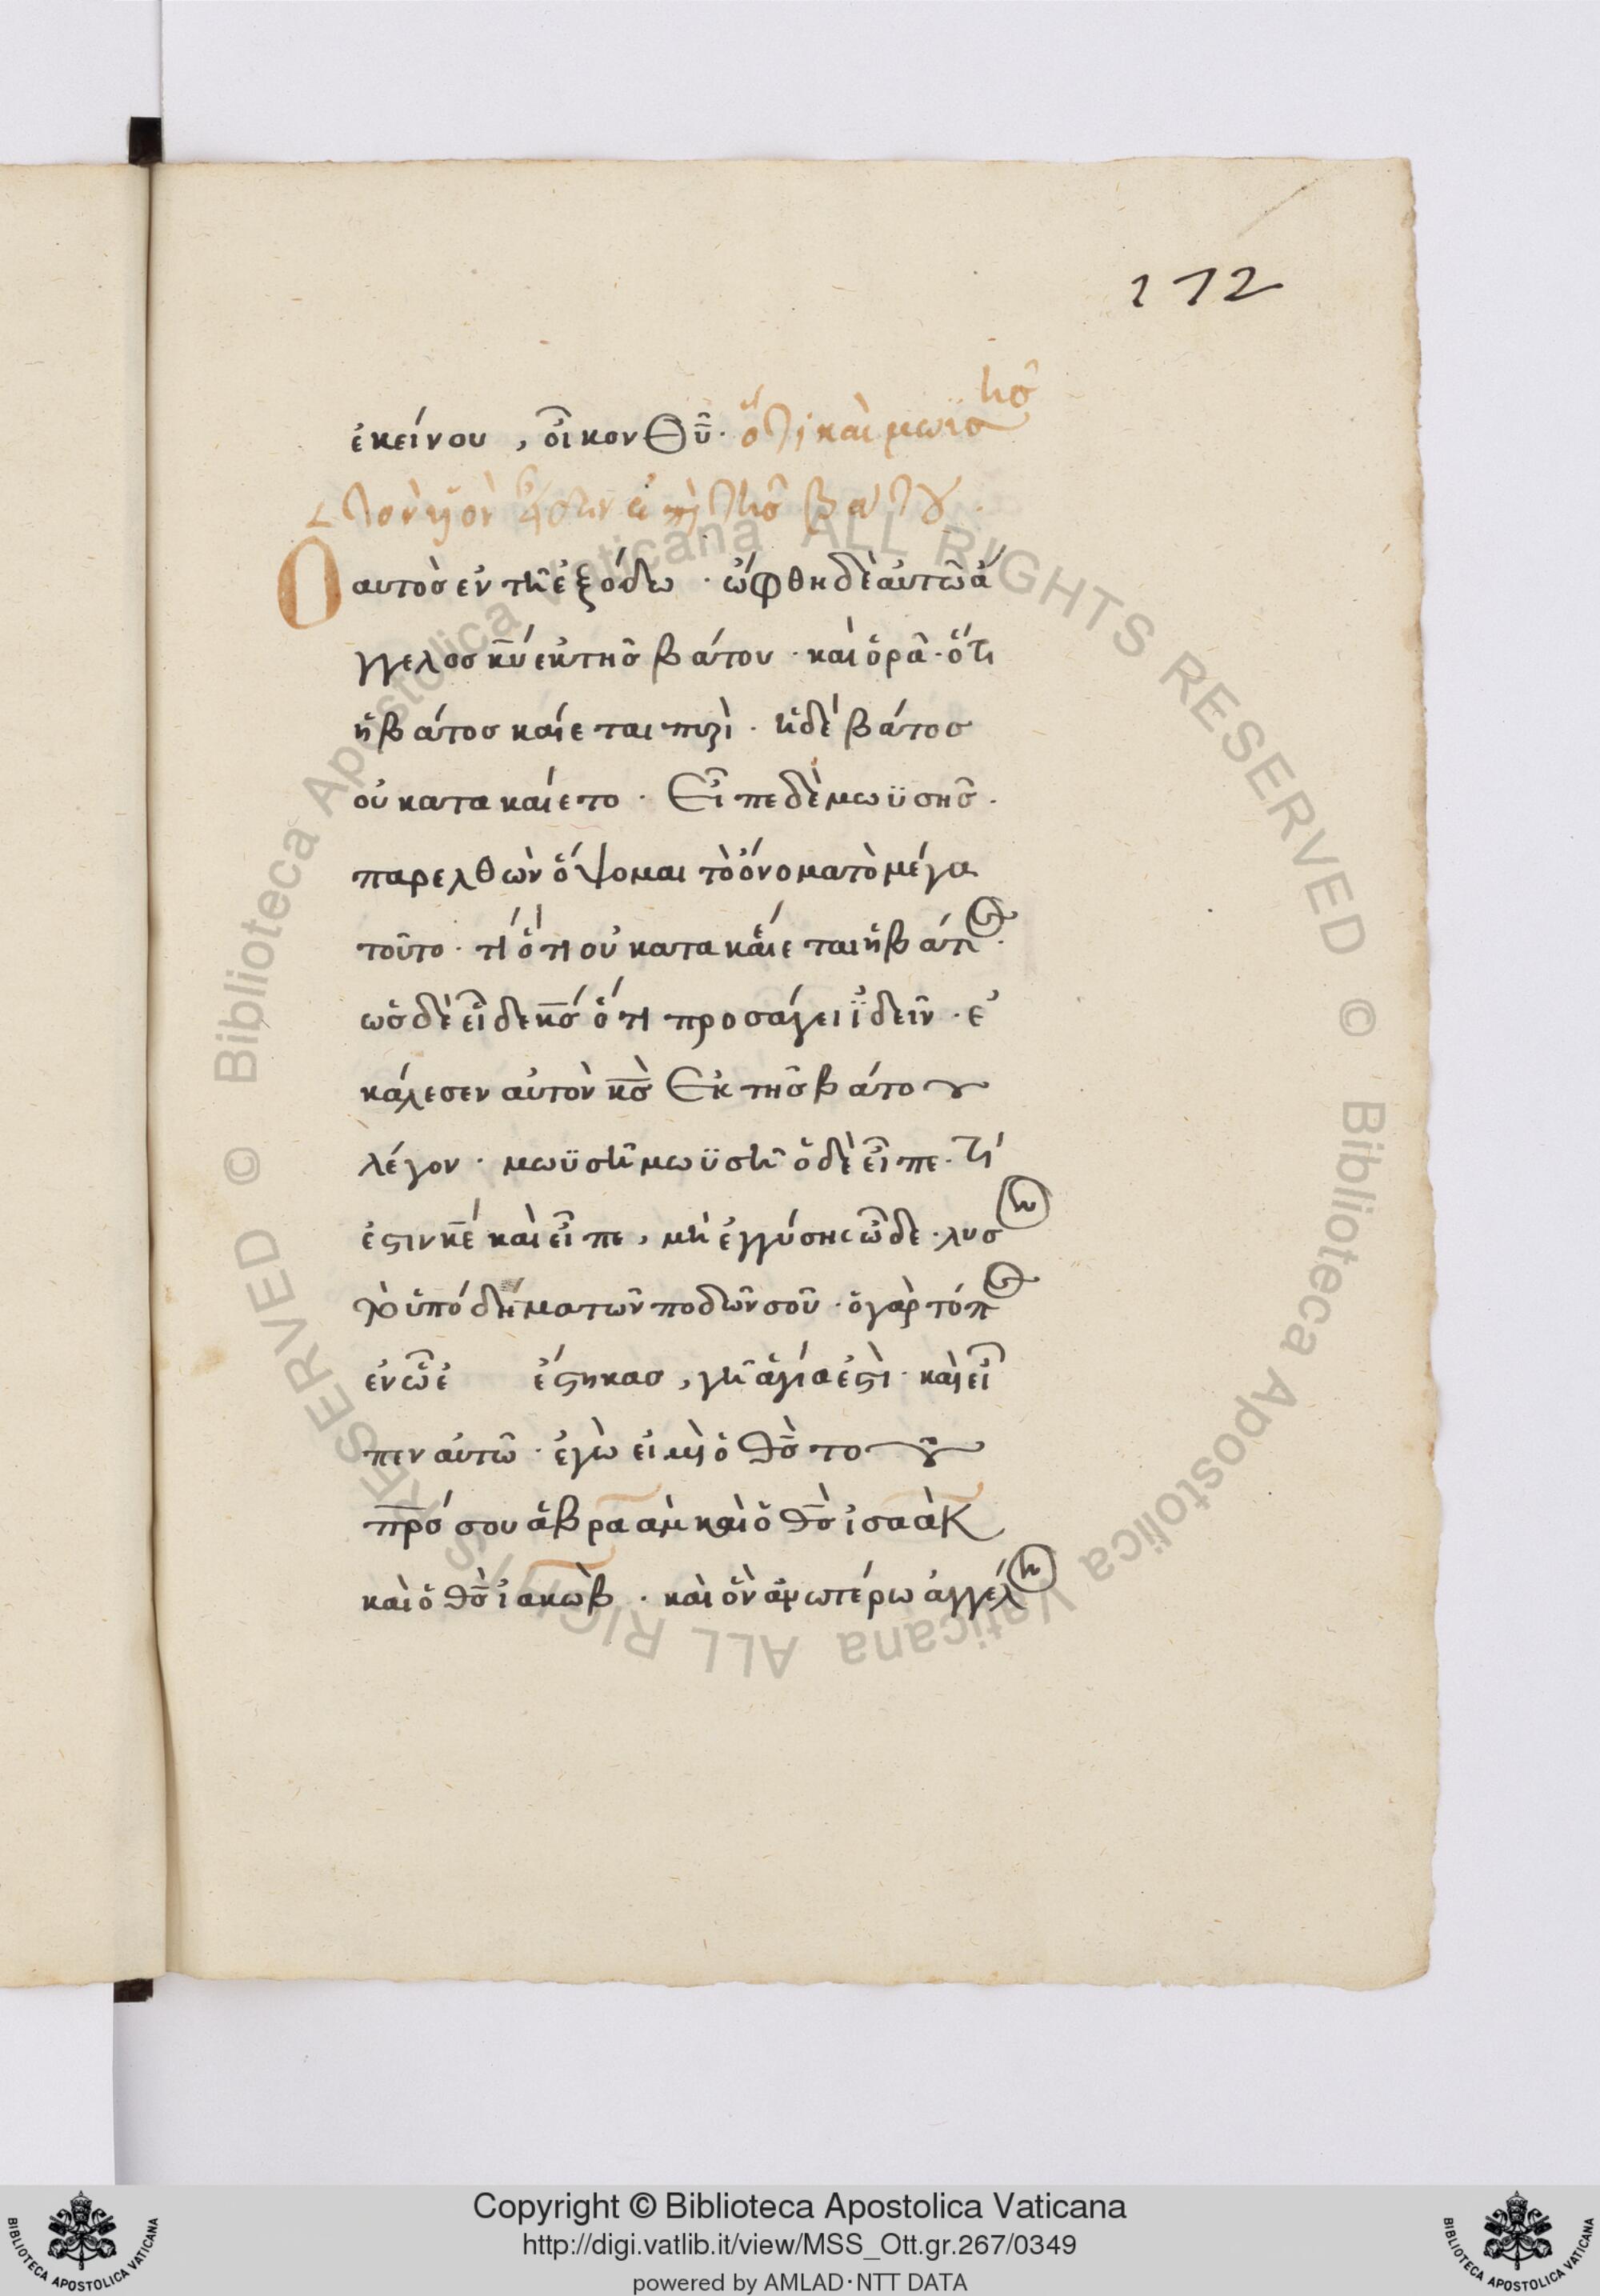 172
ἐκείνου , οἶκον Θῦ · ὅτι καὶ μωϋσῆσ
τὸν υἱὸν εἶδεν ἐπὶ τῆσ βάτου .
Ὁ αυτὸσ εν τῆ ἐξόδω · ὤφθη δὲ αὐτῶ ἄ
γγελοσ κ̅υ̅ εκ τῆσ βάτου · καὶ ὁρᾶ · ὅτι
ἡ βάτοσ καίεται πυρὶ · ἡ δὲ βάτοσ
οὐ κατακαίετο · Εἶπε δὲ μωϋσῆσ ·
παρελθὼν ὄψομαι τὸ ὄνομα τὸ μέγα
τοῦτο · τί ὅτι οὐ κατακαίεται ἡ βάτοσ ·
ὡσ δὲ εἶδε κ̅σ̅ ὅτι προσάγει ἰδεῖν · ἐ
κάλεσεν αὐτὸν κ̅σ̅ Εκ τῆσ βάτου
λέγον · μωϋσῆ μωϋσῆ ὁ δὲ εἶπε · τί
ἐστιν κ̅ε̅ καὶ εἶπε , μὴ ἐγγύσησ ὧδε · λυσον
τὸ ὑπόδημα τῶν ποδῶν σοῦ · ὁ γὰρ τόποσ
ἐν ὧ ἐ ἕστηκασ , γῆ ἁγία ἐστὶ · καὶ εἶ
πεν αυτῶ · ἐγὼ εἰμὶ ὁ θ̅σ̅ τοῦ
π̅ρ̅σ̅ σου ἀβρααμ καὶ ὁ θ̅σ̅ ἰσαὰκ
καὶ ὁ θ̅σ̅ ἰακὼβ · καὶ ὃν ἀνωτέρω ἄγγελον
Biblioteca Apostolica Vaticana ALL RIGHTS RESERVED © Biblioteca Apostolica Vaticana ALL RIGHTS RESERVED ©
Copyright © Biblioteca Apostolica Vaticana
http://digi.vatlib.it/view/MSS_Ott.gr.267/0349
powered by AMLAD·NTT DATA
BIBLIOTECA APOSTOLICA VATICANA
BIBLIOTECA APOSTOLICA VATICANA